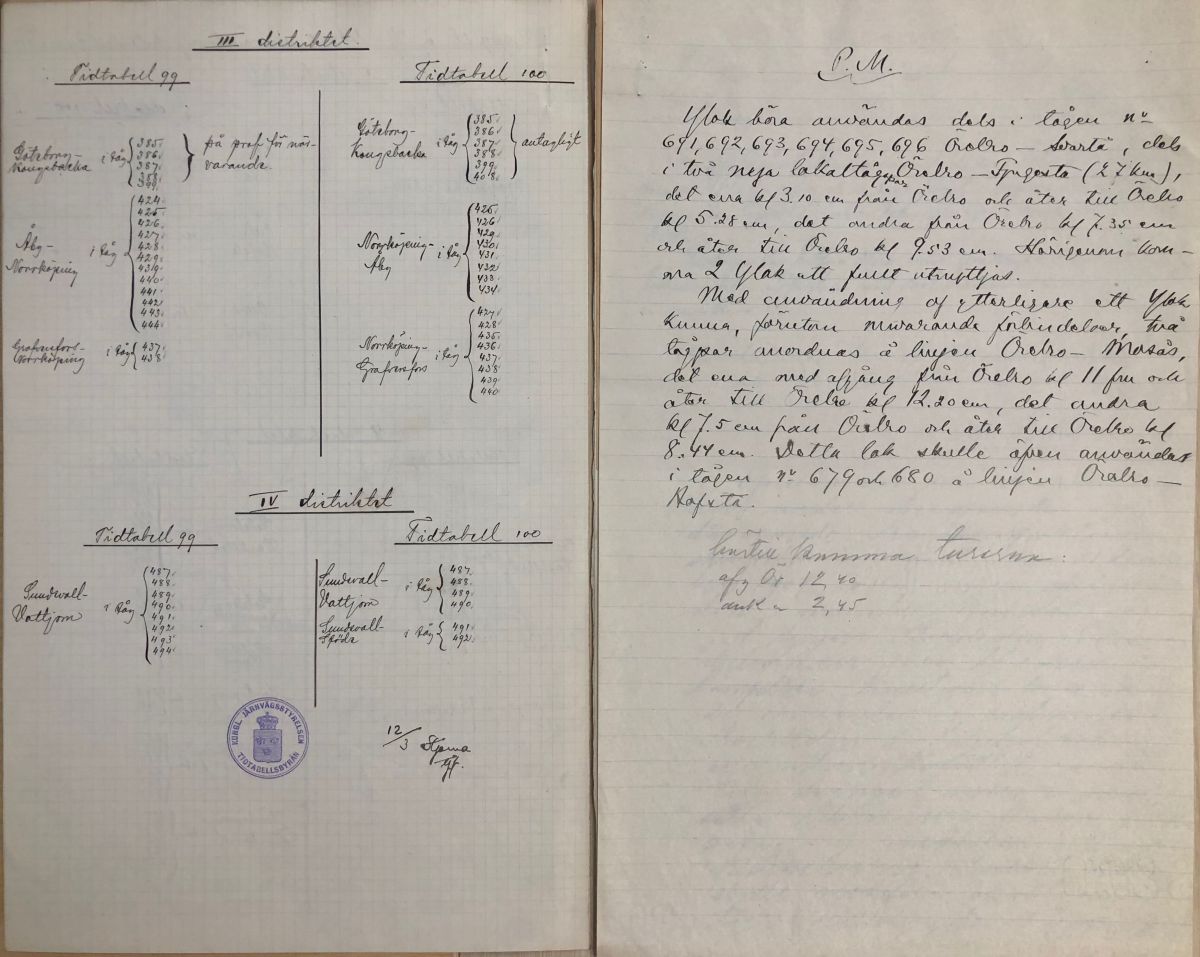 III distriktet.
Tidtabell 99
Göteborg-
Kungsbacka
i tåg
385.
386.
387.
388.
399.
på prof för när-
varande.
Åby-
Norrköping
i tåg
424.
425.
426.
427.
428.
429.
439.
440.
441.
442.
443.
444.
Norrköping
i tåg
437.
438.
Tidtabell 100
Göteborg-
Kungsbacka
i tåg
385.
386.
387.
388.
399.
408.
antagligt
Norrköping-
Åby
i tåg
425.
426.
429.
430.
431.
432.
433.
434.
Norrköping-
Grafversfors
i tåg
427.
428.
435.
436.
437.
438.
439.
440
IV distriktet
Tidtabell 99
Sundsvall-
Vattjom
i tåg
487.
488.
489.
490.
491.
492.
493.
494.
Tidtabell 100
Sundsvall-
Vattjom
i tåg
487.
488.
489.
490.
Sundsvall-
Stöde
i tåg
491.
492.
KONGL. JÄRNVÄGSSTYRELSEN
TIDTABELLSBYRÅN
12/3
P. M.
Ylok böra användas dels i tågen nr
691, 692, 693, 694, 695, 696 Örebro – Svartå, dels
i två nya lokaltågspar Örebro – Tjugesta (27 km),
det ena kl 3.10 em från Örebro och åter till Örebro
kl 5.28 em, det andra från Örebro kl 7.35 em
och åter till Örebro kl 9.53 em. Härigenom kom-
ma 2 Ylok att fullt utnyttjas.
Med användning af ytterligare ett Ylok
kunna, förutom nuvarande förbindelser, två
tågpar anordnas å linjen Örebro – Mosås,
det ena med afgång från Örebro kl 11 fm och
åter till Örebro kl 12.20 em, det andra
kl 7.5 em från Örebro och åter till Örebro kl
8.44 em. Detta lok skulle äfven användas
i tågen nr 679 och 680 å linjen Örebro –
Hofsta.
härtill komma turerna:
afg Ör 12,40
ank " 2,45